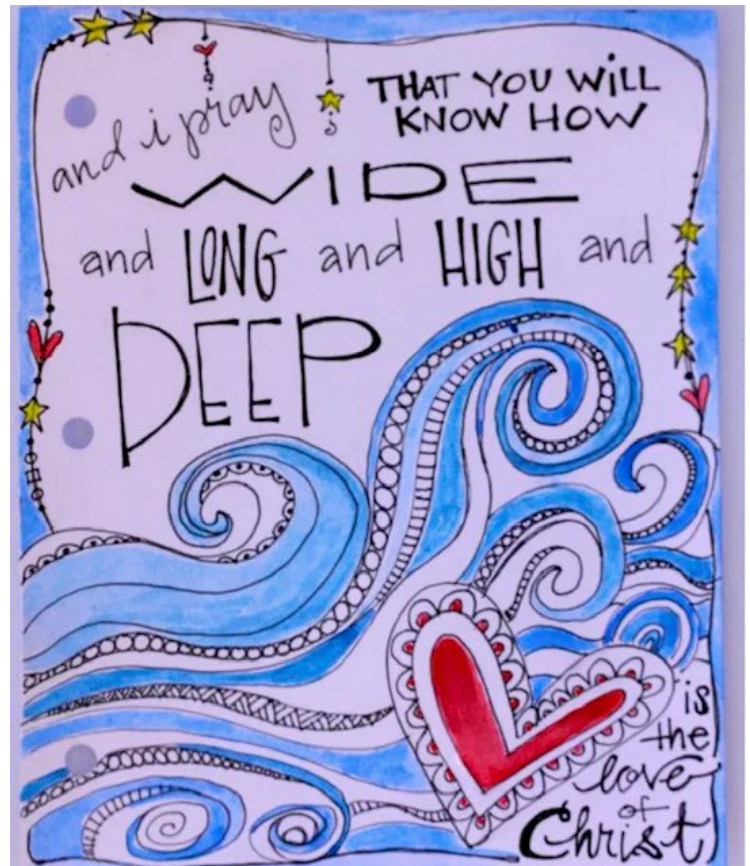 and i pray THAT YOU WILL
KNOW HOW
WIDE
and LONG and HIGH and
DEEP
is
the
love
of
Christ